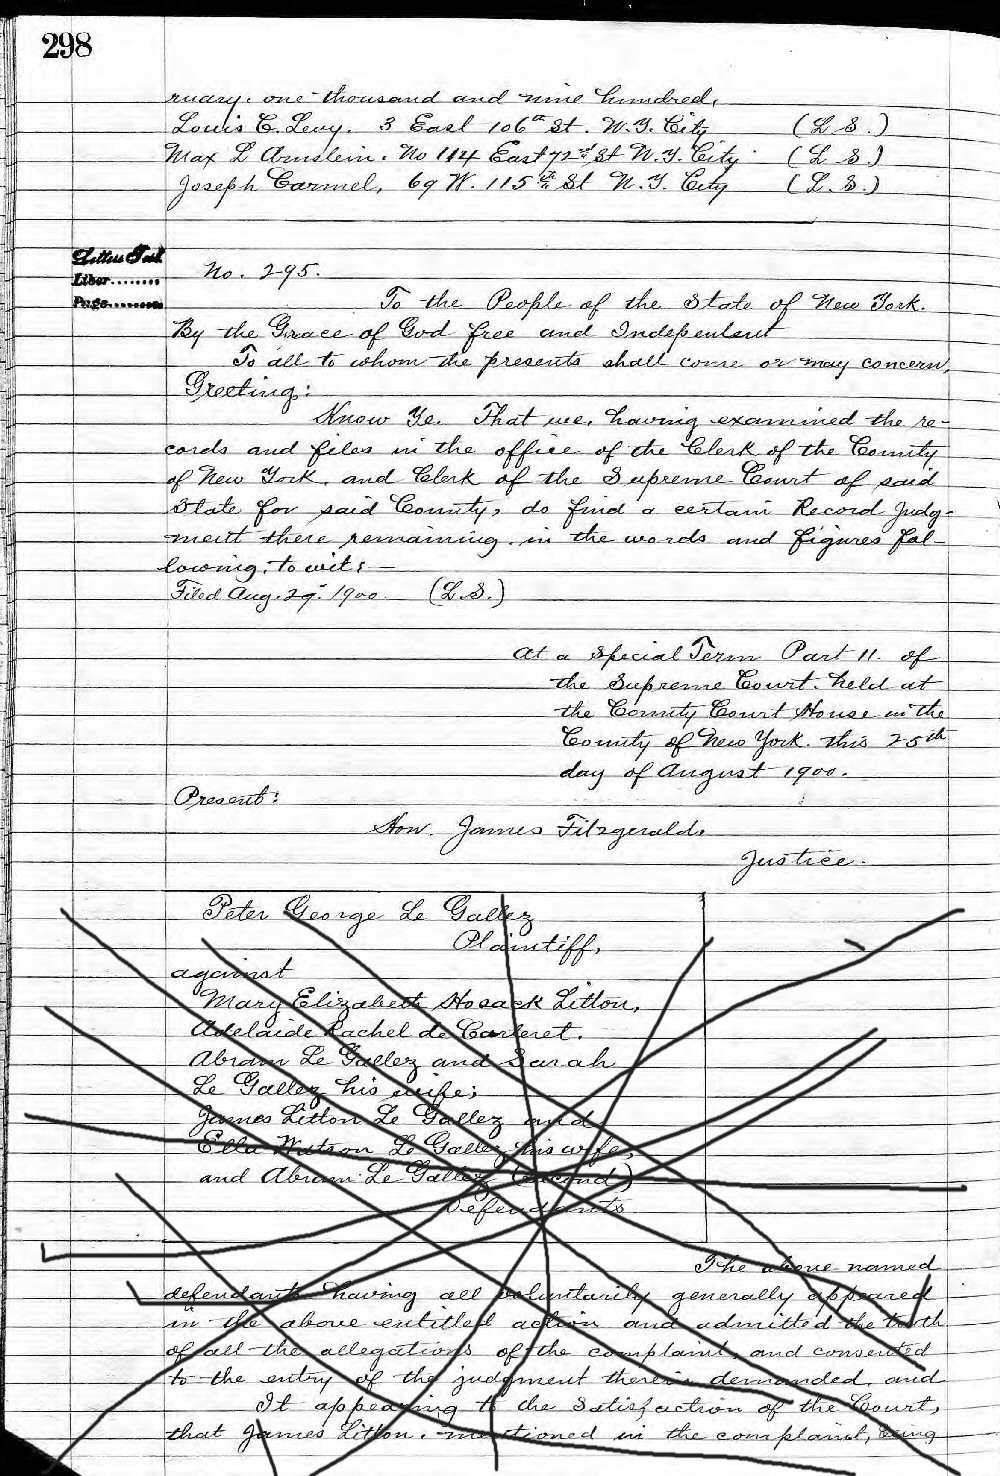 298
ruary. one thousand and nine hundred.
Louis C. Levy. 3 East 106th St. N.Y. City (L. S.)
Max L Arnstein. No 114 East 72nd St N.Y. City (L. S.)
Joseph Carmel, 69 W. 115th St N.Y. City (L. S.)
Letters Test.
Liber........
Page.........
No. 295.
To the People of the State of New York.
By the Grace of God free and Independent
To all to whom the presents shall come or may concern,
Greeting:
Know Ye. That we, having examined the re-
cords and files in the office of the Clerk of the County
of New York. and Clerk of the Supreme Court of said
State for said County, do find a certain Record Judg-
ment there remaining. in the words and figures fol-
lowing. to wit: —
Filed Aug. 29. 1900 (L.S.)
At a Special Term Part II. of
the Supreme Court. held at
the County Court House in the
County of New York. this 25th
day of August 1900.
Present:
Hon. James Fitzgerald,
Justice.
Peter George Le Gallez
Plaintiff,
against
Mary Elizabeth Hosack Litton,
Adelaide Rachel de Carteret.
Abram Le Gallez and Sarah
Le Gallez his wife;
James Litton Le Gallez and
Ella Watson Le Gallez his wife,
and Abram Le Gallez (second)
Defendants.
The above named
defendants having all voluntarily generally appeared
in the above entitled action and admitted the truth
of all the allegations of the complaint, and consented
to the entry of the judgment therein demanded, and
It appearing to the Satisfaction of the Court,
that James Litton. mentioned in the complaint, being